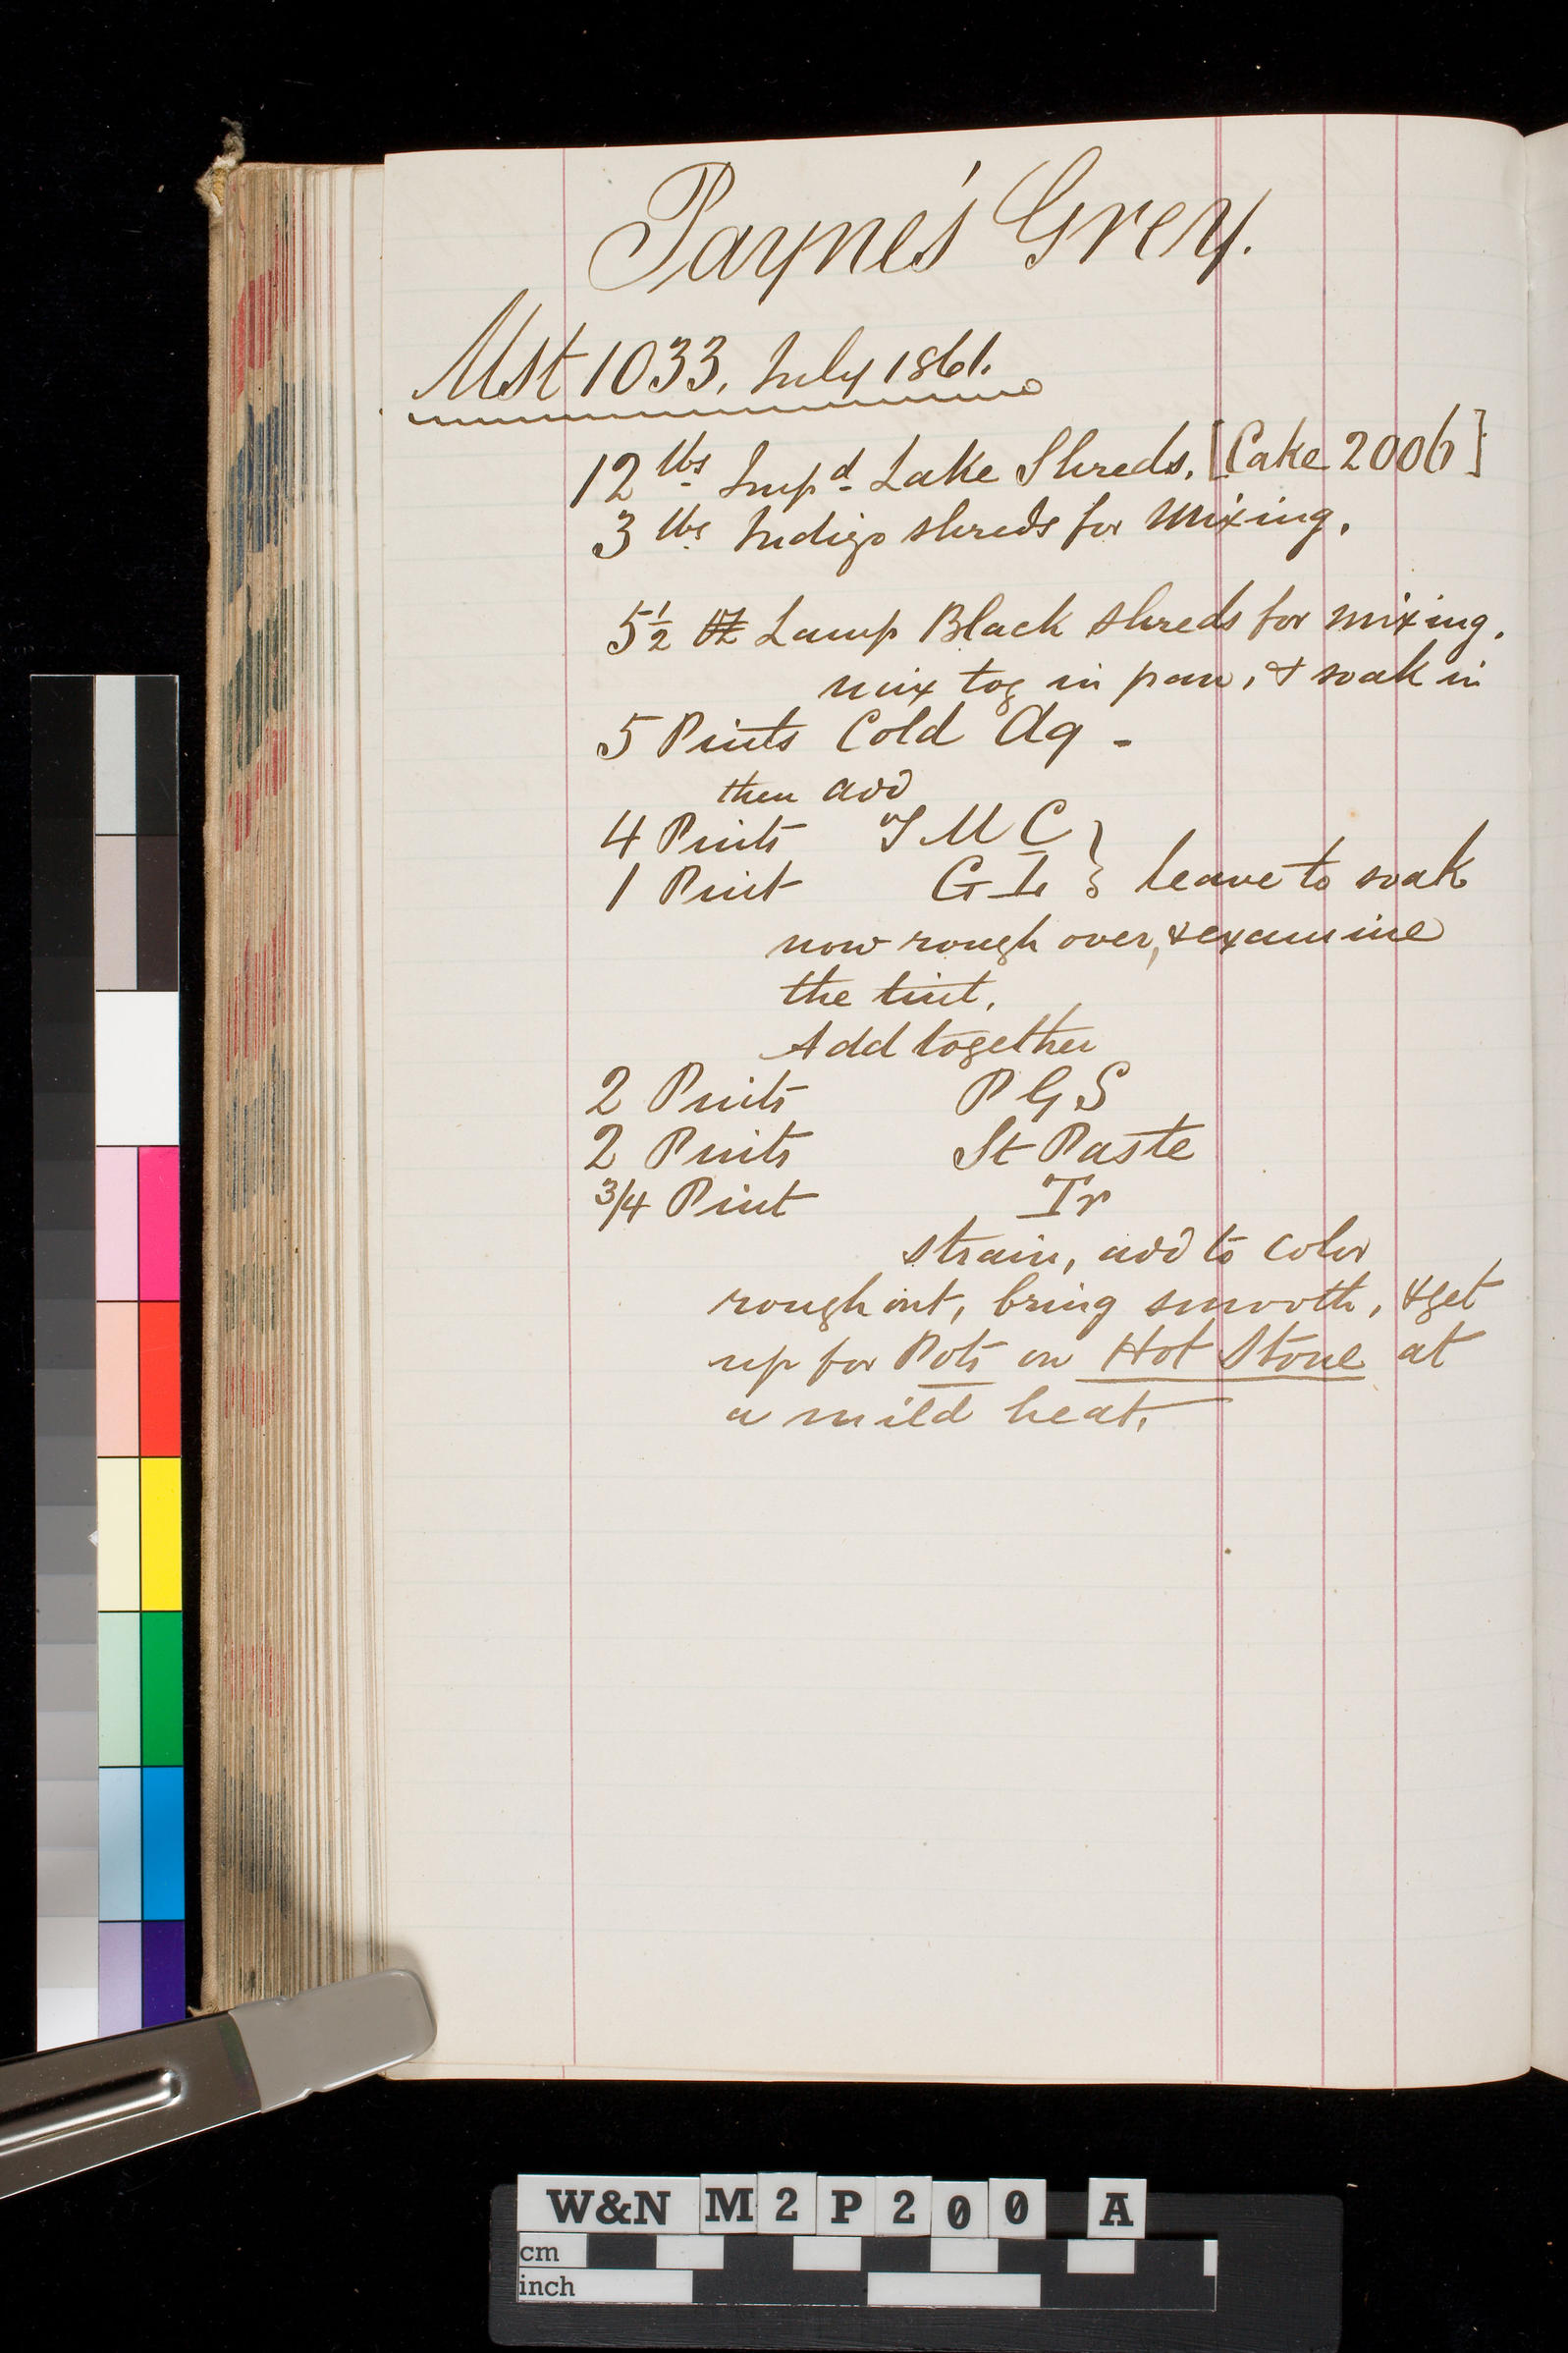 Payne's Grey.
Mst 1033, July 1861.
12 lbs Impd Lake Shreds. [Cake 2006]
3 lbs Indigo shreds for Mixing.
5 1/2 lb Lamp Black shreds for mixing.
mix tog in pan, & soak in
5 Pints Cold Aq -
then add
4 Pints T M C }
1 Pint G L } leave to soak
now rough over, & examine
the tint.
Add together
2 Pints P G S
2 Pints St Paste
3/4 Pint Tr
strain, add to color
rough out, bring smooth, & get
up for Pots on Hot Stone at
a mild heat.
W&N M2P200 A
cm
inch